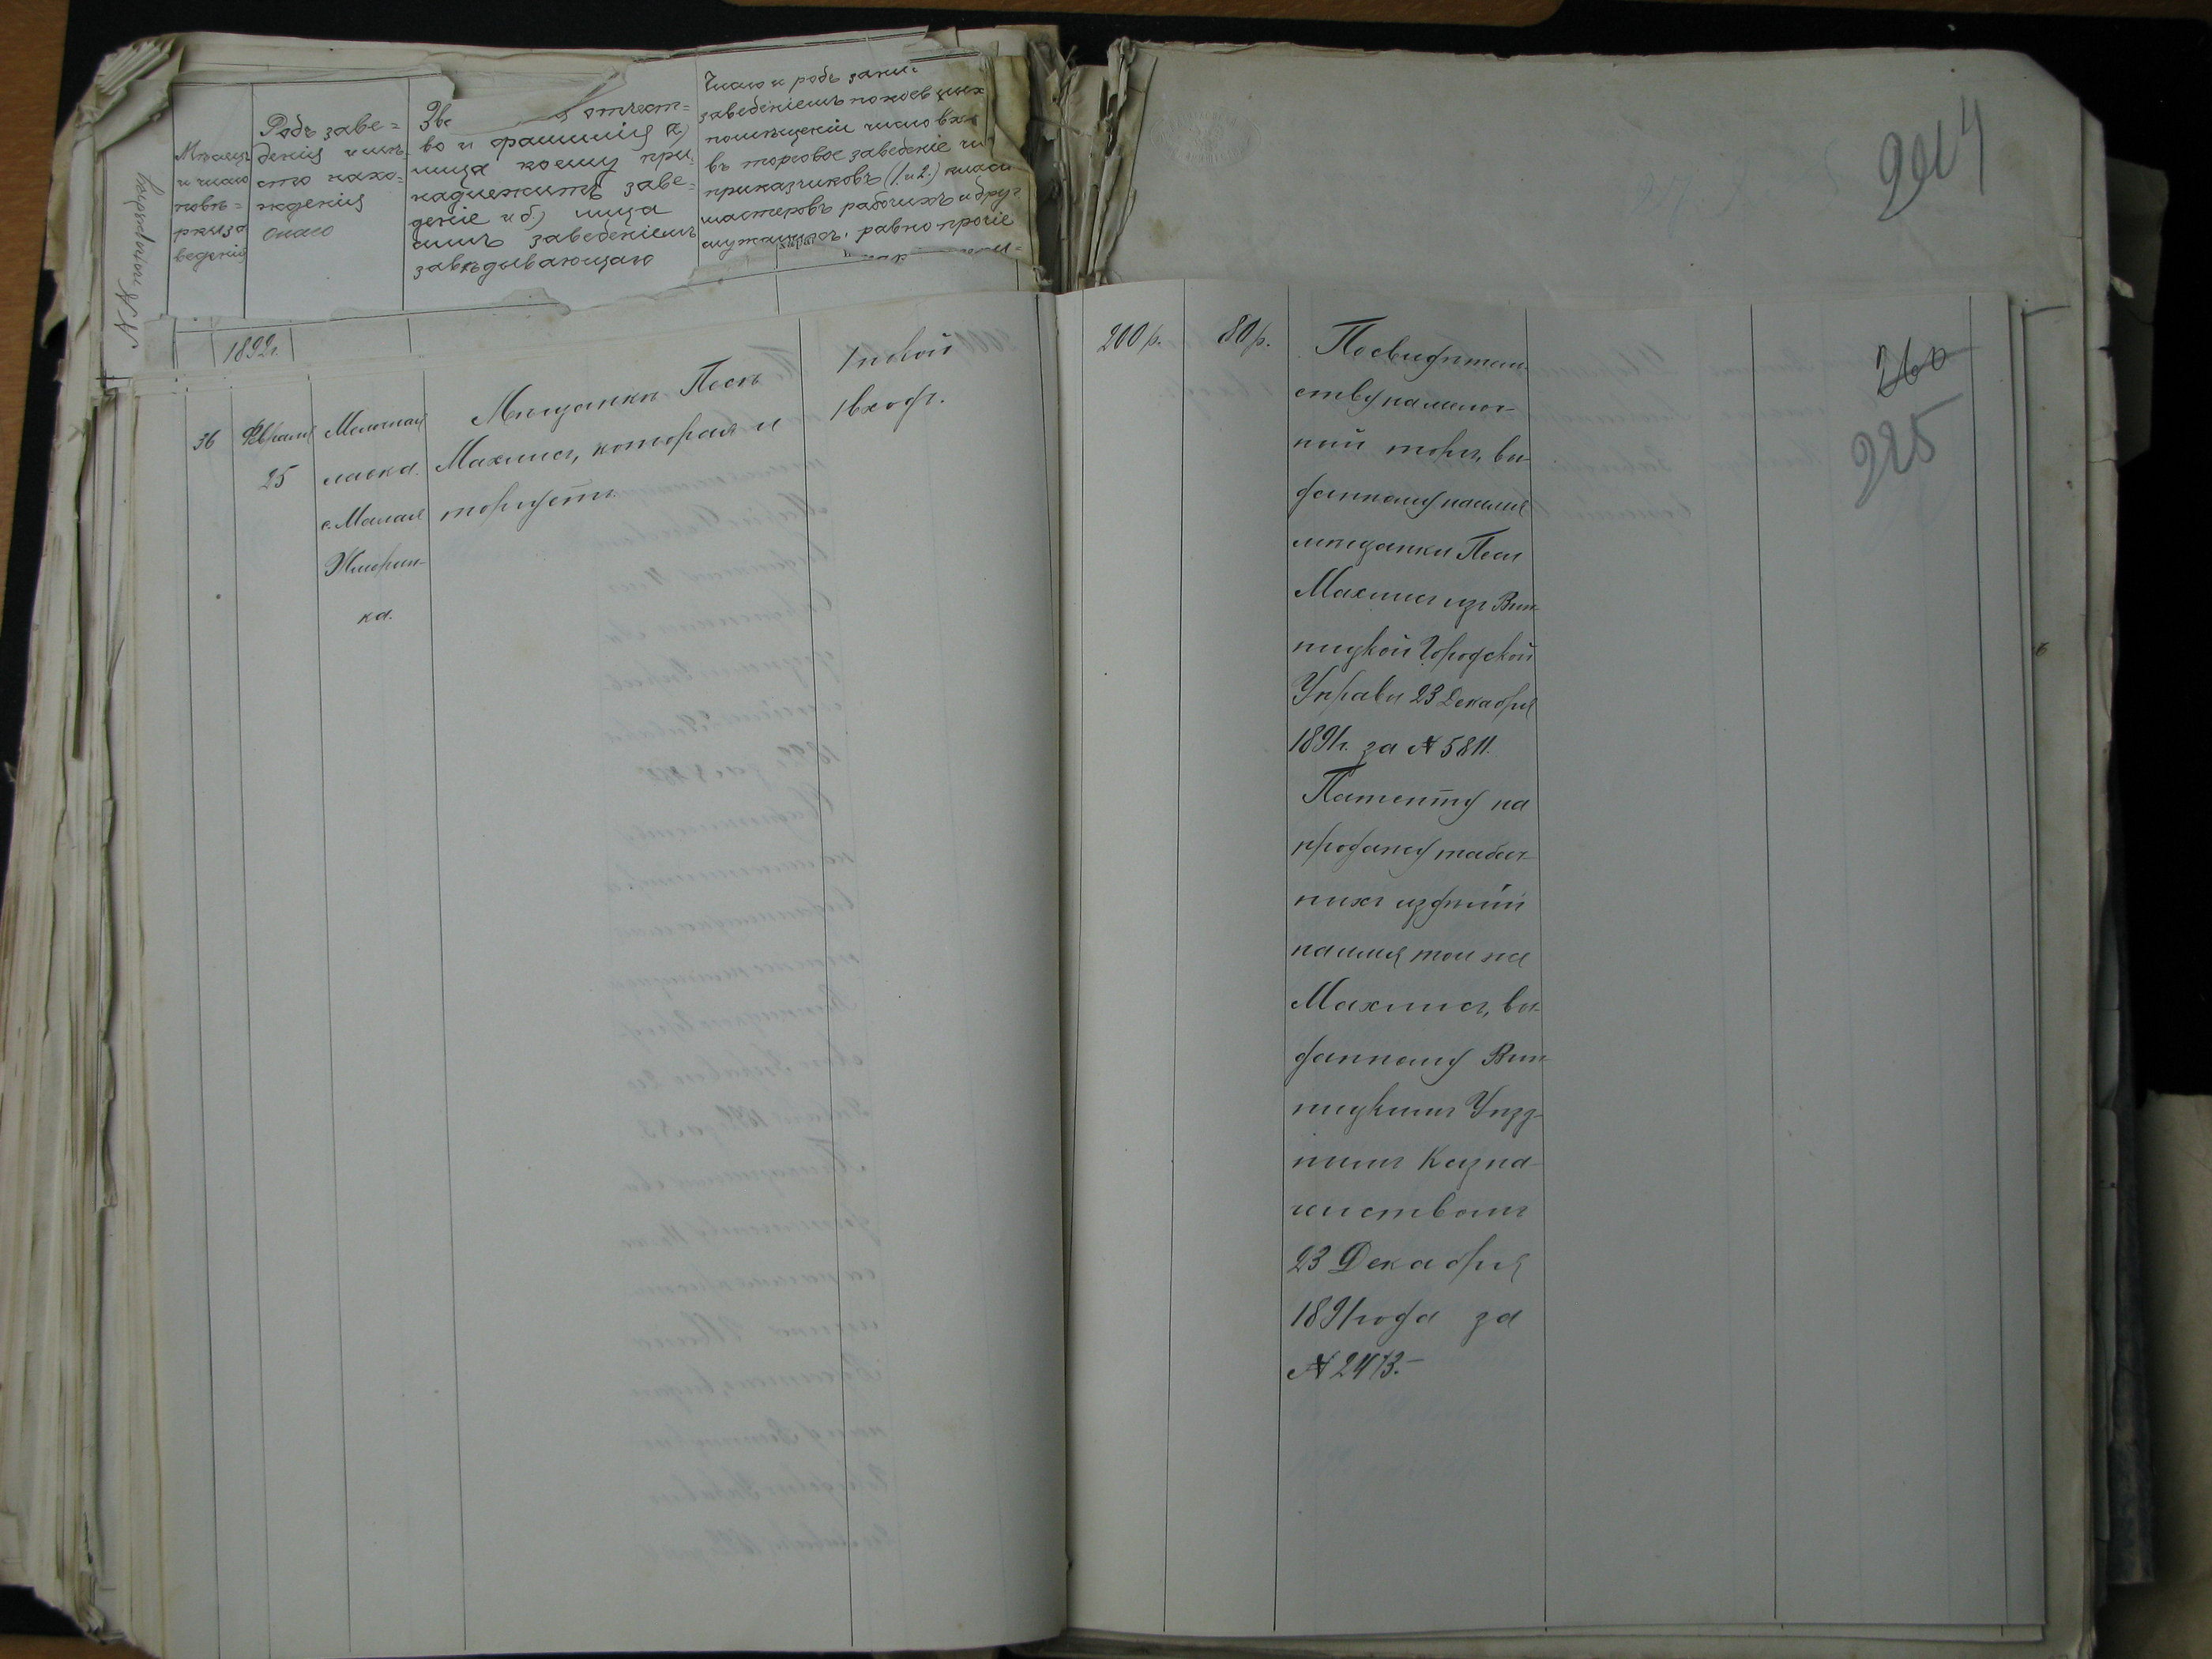 NN по порядку
Мѣсяцъ
и число
повѣ=
рки за
веденій
Родъ заве=
денія и мѣ
сто нахо=
жденія
онаго
Зва отчест=
во и фамилія а)
лица коему при
надлежитъ заве=
деніе и б) лица
симъ заведеніемъ
завѣдывающаго
Число и родъ зани
заведеніемъ покоевъ
помѣщеніи число вхо
въ торговое заведеніе чи
приказчиковъ (1 и 2) класс
мастеровъ рабочихъ и друг
служащихъ, равно прочіе
1892г.
36
Февраля
25
Мелочная
лавка.
с. Малая
Жмерин-
ка.
Мѣщанки Песѣ
Махлисъ, которая и
торгуетъ.
1 покой
1 входъ.
204
200 р.
80 р.
По свидѣтель-
ству на мелоч-
ный торгъ, вы-
данному на имя
мѣщанки Песи
Махлисъ изъ Вин-
ницкой Городской
Управы 23 Декабря
1891г. за № 5811.
Патенту на
продажу табач-
ныхъ издѣлій
на имя той же
Махлисъ, вы-
данному Вин-
ницкимъ Уѣзд-
нымъ Казна-
чействомъ
23 Декабря
1891 года за
№ 2473.-
260
225